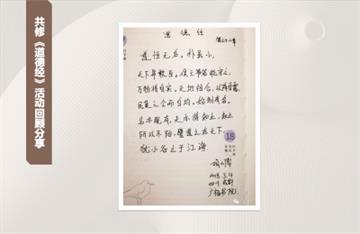 共修《道德经》活动回顾分享
道德经
第三十二章
道恒无名，朴虽小，
天下莫敢臣。侯王若能守之，
万物将自宾。天地相合，以降甘露，
民莫之令而自均。始制有名，
名亦既有，夫亦将知止，知止
所以不殆。譬道之在天下，
犹小谷之于江海。
18
2018.3.14
四川 成都